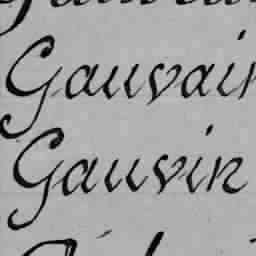 Gauvain
Gauvin